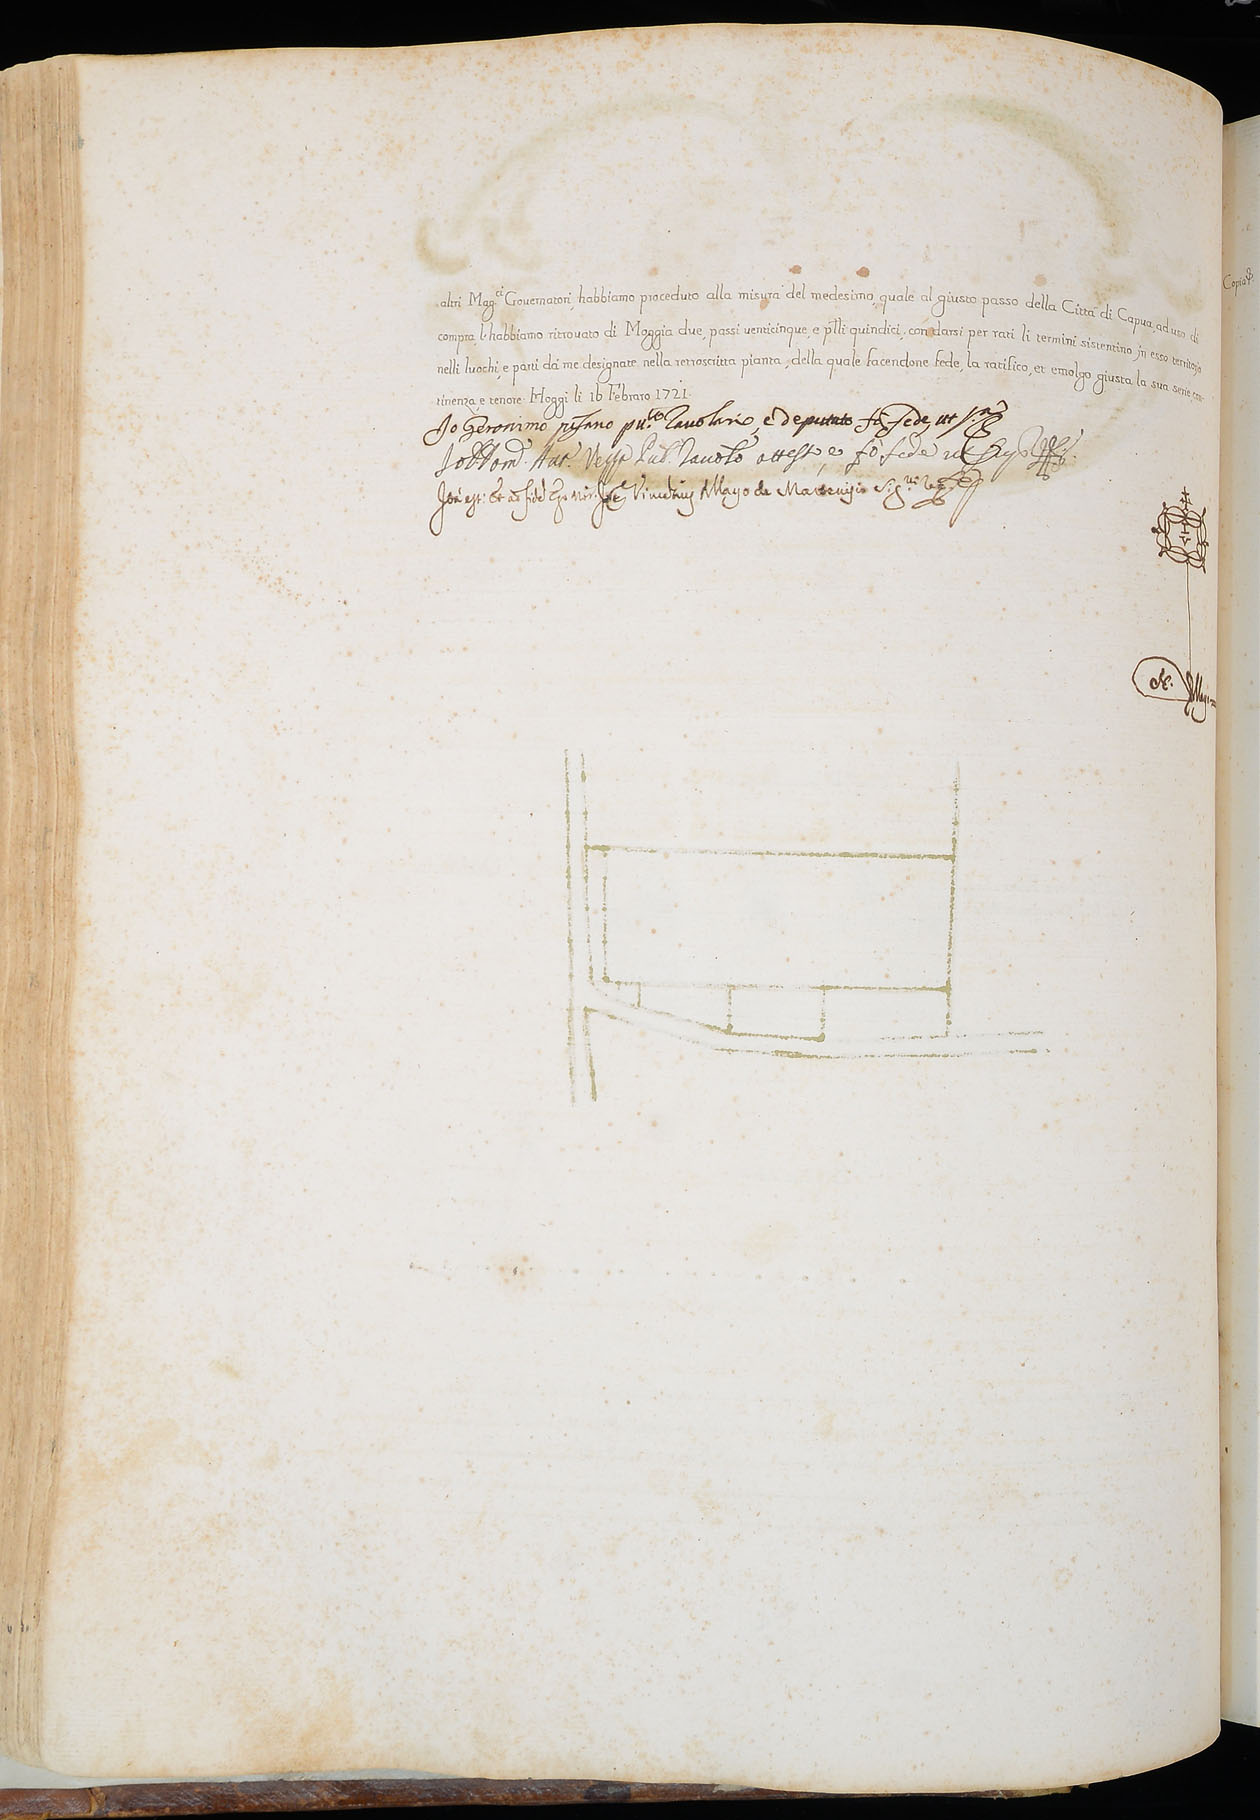 altri Mag.ci Governatori, habbiamo proceduto alla misura del medesimo, quale al giusto passo della Città di Capua, ad uso di
compra l'habbiamo ritrovato di Moggia due, passi venticinque, e p̃lli quindici, con darsi per rati li termini sistentino in esso territorio
nelli luochi, e parti da me designate nella retroscritta pianta, della quale facendone fede, la ratifico, et emolgo giusta la sua serie, con-
tinenza, e tenore. Moggi li 16 Febraro 1721.
Io Geronimo pisano pu.co Tavolario, e deputato fò fede ut s.a
Pub. Tavol.o attesto, e fò fede
Mayo de
Copia
A.
Mayo